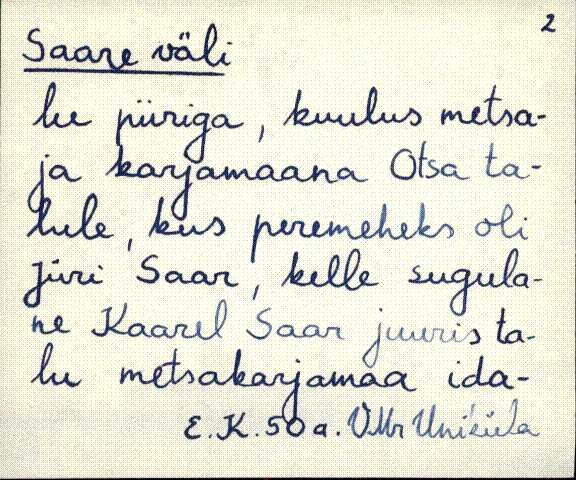 2
Saare väli
lu piiriga, kuulus metsa-
ja karjamaana Otsa ta-
lule, kus peremeheks oli
Jüri Saar, kelle sugula-
ne Kaarel Saar juuris ta-
lu metsakarjamaa ida-
E.K.50a. VMr Uniküla